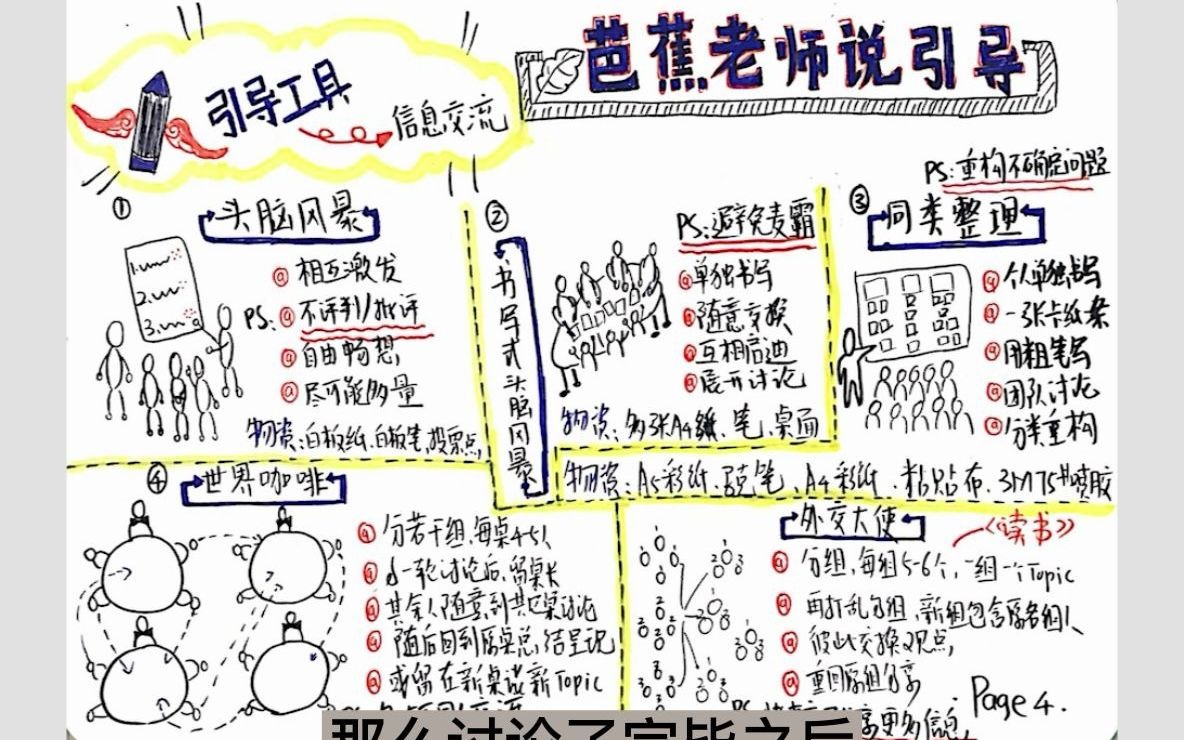 芭蕉老师说引导
引导工具
信息交流
PS:重构不确定问题
①
头脑风暴
相互激发
PS:
不评判/批评
自由畅想
尽可能多量
物资:白板纸、白板笔,投票点,
②
书写式头脑风暴
PS:避免麦霸
单独书写
随意交换
互相启迪
展开讨论
物资:多张A4纸、笔、桌面
③
同类整理
个人单独书写
一张卡纸一条
用粗笔写
团队讨论
分类重构
物资:A5彩纸、马克笔、A4彩纸、粘贴布、3M75#喷胶
④
世界咖啡
分若干组,每桌4-5人
第一轮讨论后,留桌长
其余人随意到其它桌讨论
随后回到原桌总结呈现
或留在新桌谈新Topic
外交大使
《读书》
分组,每组5-6个,一组一个Topic
再打乱分组,新组包含原各组人
彼此交换观点,
重回原组分享
享更多信息
Page 4.
那么讨论了完毕之后